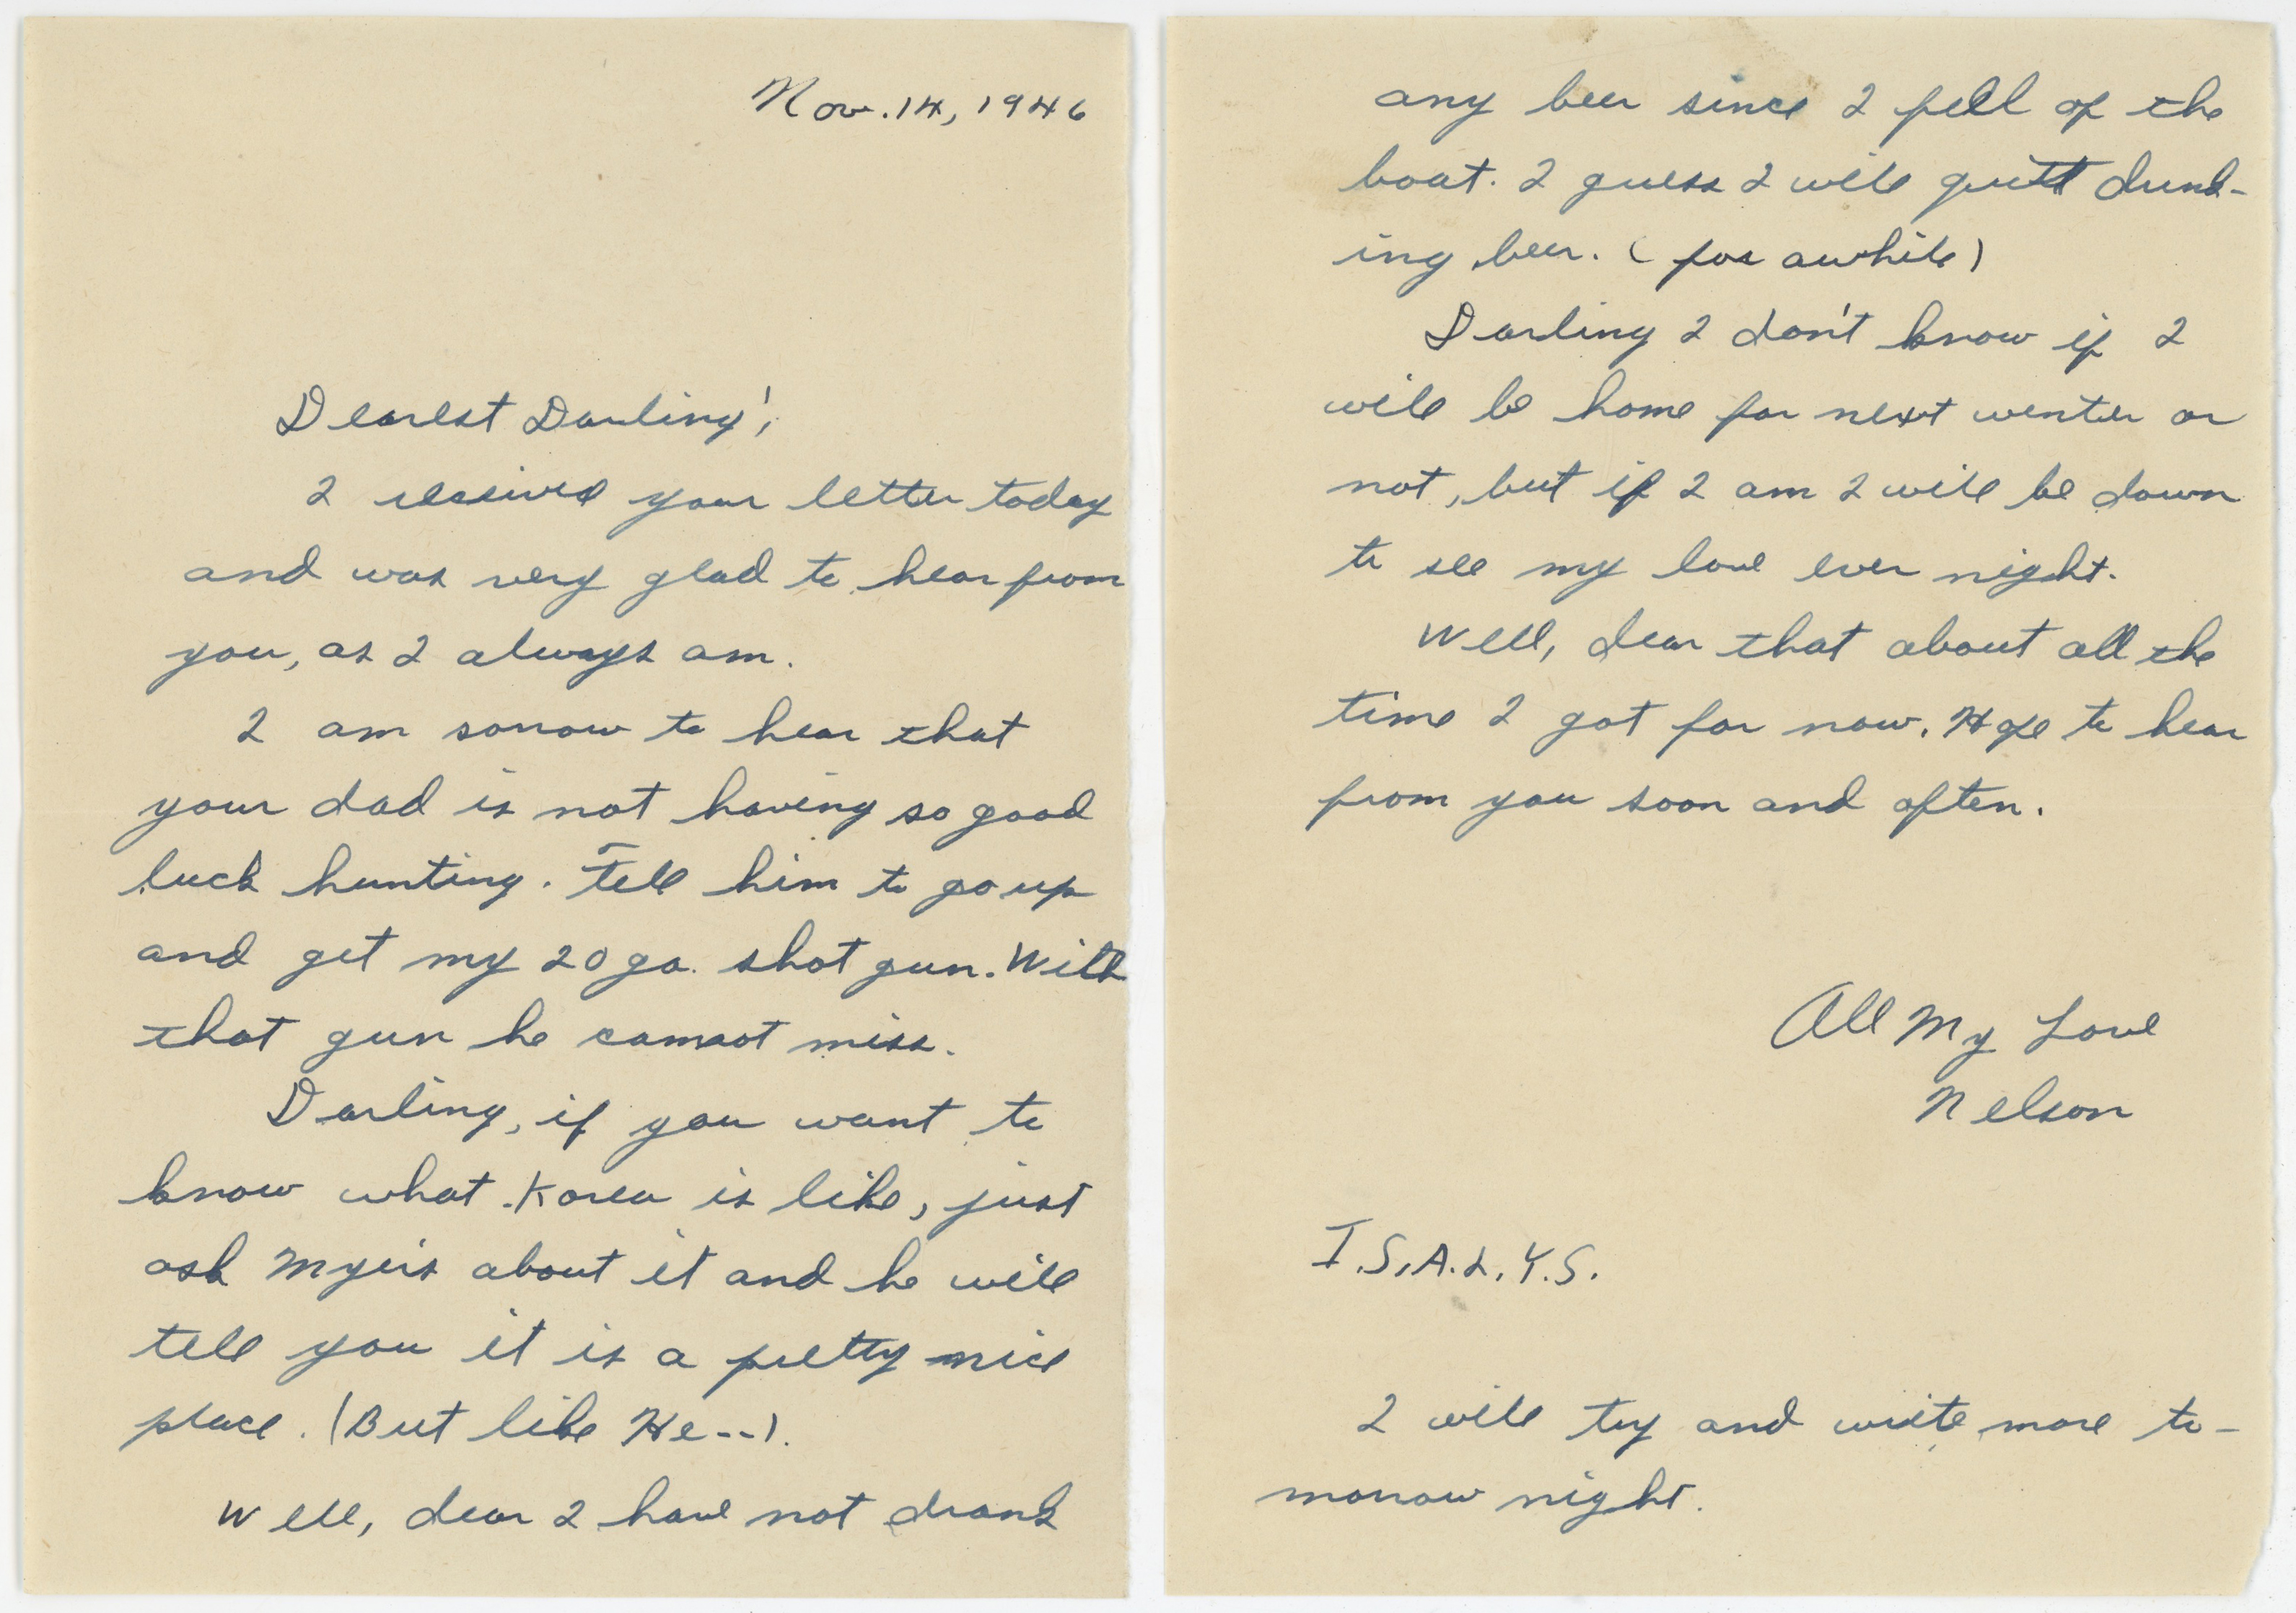 Nov. 14, 1946
Dearest Darling;
I receive your letter today
and was very glad to hear from
you, as I always am.
I am sorrow to hear that
your dad is not having so good
luck hunting. Tell him to go up
and get my 20 ga. shot gun. With
that gun he cannot miss.
Darling, if you want to
know what Korea is like, just
ask Myers about it and he will
tell you it is a pretty nice
place. (But like He--).
Well, dear I have not drank
any beer since I fell of the
boat. I guess I will quitt drink-
ing beer. (for awhile)
Darling I don't know if I
will be home for next winter or
not, but if I am I will be down
to see my love ever night.
Well, dear that about all the
time I got for now. Hope to hear
from you soon and often.
All My Love
Nelson
I.S.A.L.Y.S.
I will try and write more to-
morrow night.